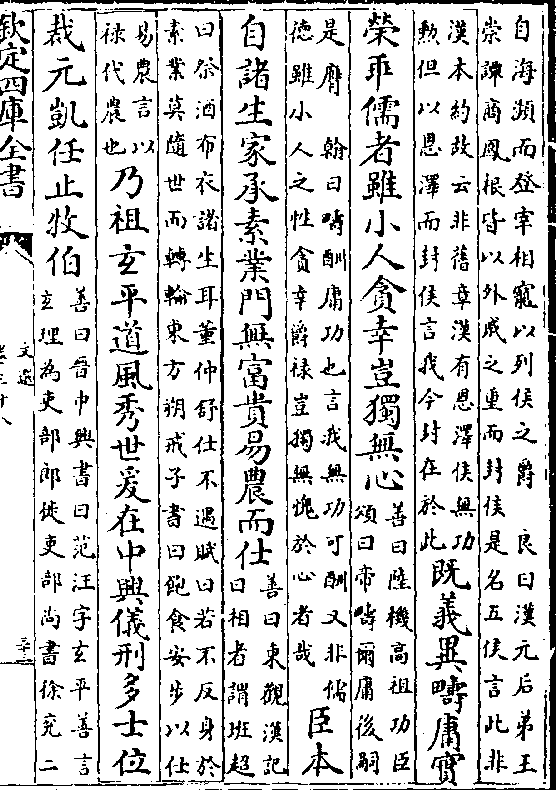 自海瀕而登宰相寵以列侯之爵　良曰漢元后弟王
崇譚商鳳根皆以外戚之重而封侯是名五侯言此非
漢本約故云非舊章漢有恩澤侯無功
勲但以恩澤而封侯言我今封在於此
既義異疇庸實
榮乖儒者雖小人貪幸豈獨無心
善曰陸機高祖功臣
頌曰帝疇爾庸後嗣
是膺　翰曰疇酬庸功也言我無功可酬又非儒
德雖小人之性貪幸爵禄豈獨無愧於心者哉
臣本
自諸生家承素業門無富貴易農而仕
善曰東觀漢記
曰相者謂班超
曰祭酒布衣諸生耳董仲舒仕不遇賦曰若不反身於
素業莫隨世而轉輪東方朔戒子書曰飽食安步以仕
易農言以
禄代農也
乃祖玄平道風秀世爰在中興儀刑多士位
裁元凱任止牧伯
善曰晉中興書曰范汪字玄平善言
玄理為吏部郎徙吏部尚書徐兖二
欽定四庫全書
文選
卷三十八